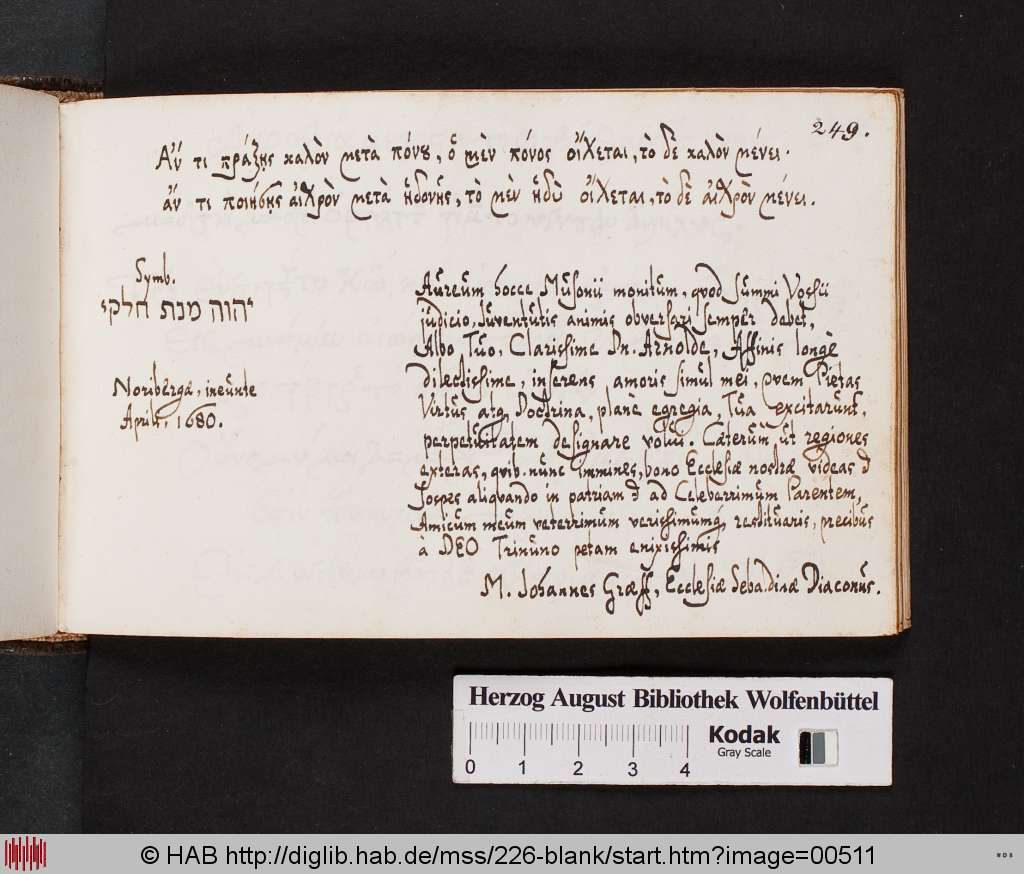 249.
Ἄν τι πράξῃς καλὸν μετὰ πόνου, ὁ μὲν πόνος οἴχεται, τὸ δὲ καλὸν μένει.
ἄν τι ποιήσῃς αἰσχρὸν μετὰ ἡδονῆς, τὸ μὲν ἡδὺ οἴχεται, τὸ δὲ αἰσχρὸν μένει.
Symb.
יהוה מנת חלקי
Noribergæ, ineunte
April. 1680.
Aureum hocce Musonii monitum, quod summi Vossii
judicio, Juventutis animis obversari semper debet,
Albo Tuo, Clarissime Dn. Arnolde, Affinis longè
dilectissime, inserens amoris simul mei, quem Pietas
Virtus atq, Doctrina, planè egregia, Tua excitarunt,
perpetuitatem designare volui. Cæterum, ut regiones
exteras, quib. nunc immines, bono Ecclesiæ nostræ videas &
sospes aliquando in patriam & ad Celeberrimum Parentem,
Amicum meum veterrimum verissimumq, restituaris, precibus
à DEO Trinuno petam enixissimis
M. Johannes Græff, Ecclesiæ Sebaldinæ Diaconus.
Herzog August Bibliothek Wolfenbüttel
Kodak
Gray Scale
0 1 2 3 4
© HAB http://diglib.hab.de/mss/226-blank/start.htm?image=00511
WDB